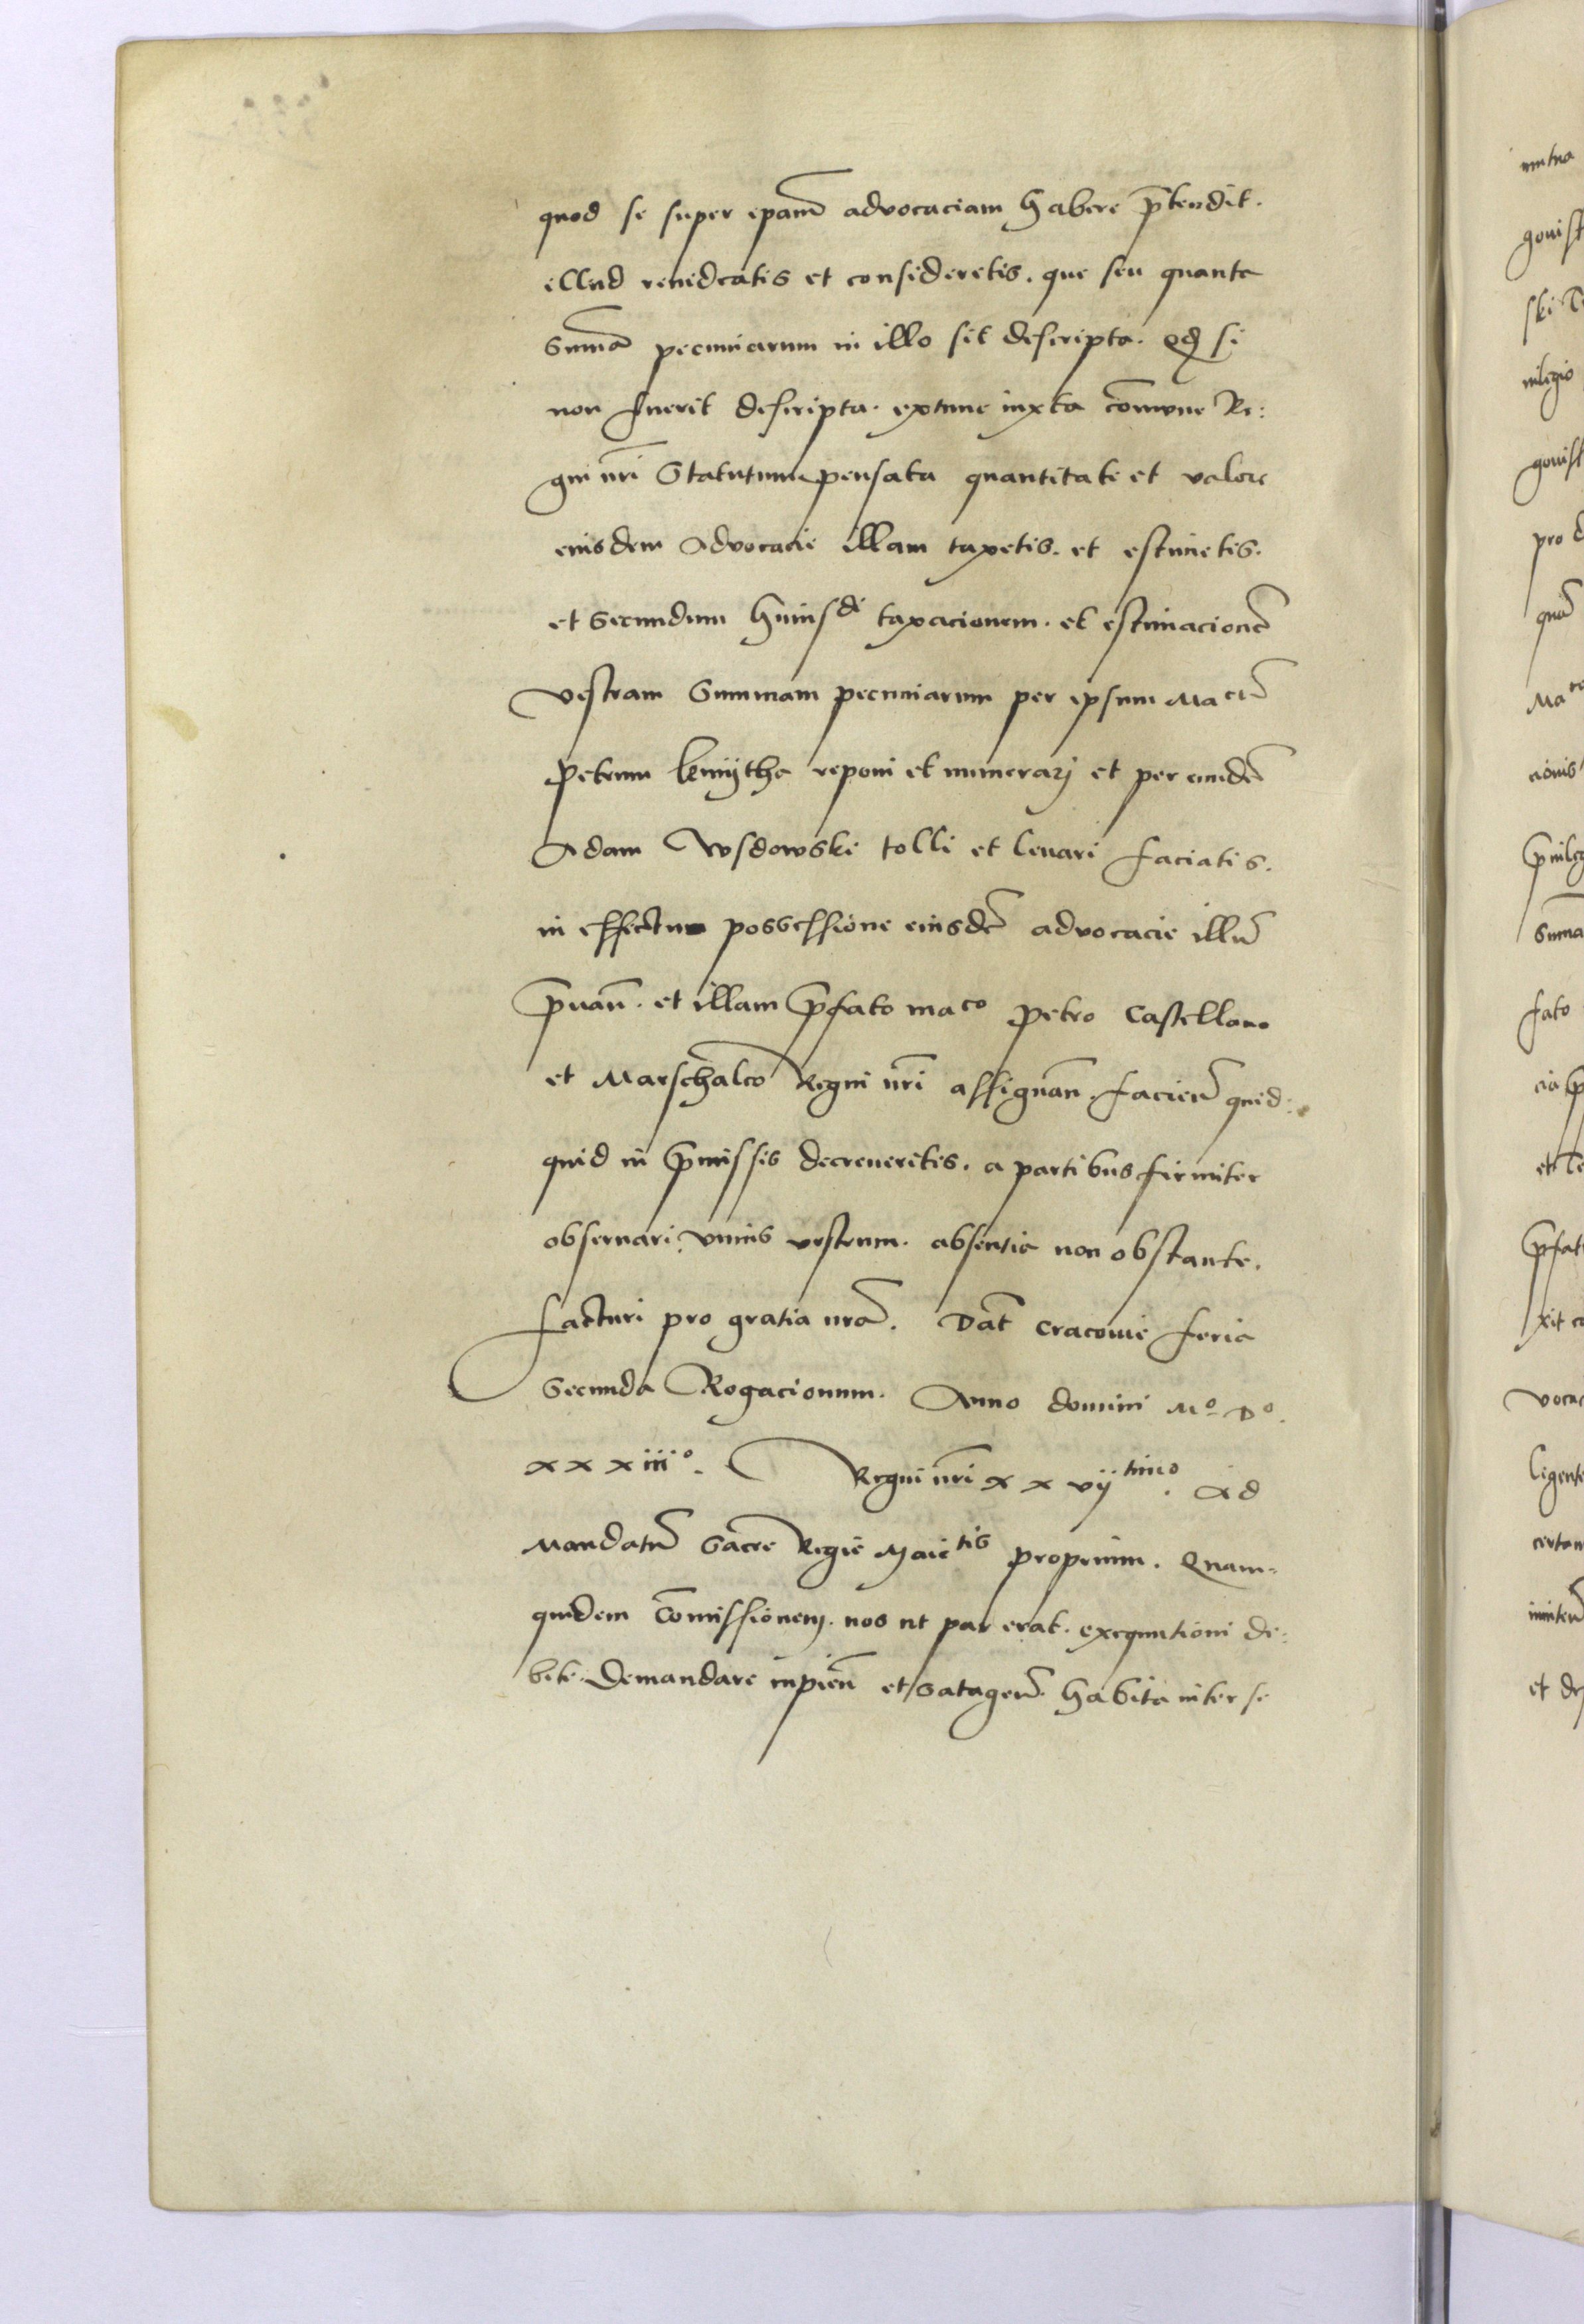 quod se super ep̃am̃ advocaciam habere p̃tendit.
illud revideatis et consideretis. que seu quanta
Sum̃a pecuniarum in illo sit descripta. Qđ si
non fuerit descripta. extunc iuxta com̃une Re:
gni nr̃i Statutum pensata quantitate et valore
eiusdem Advocacie illam taxetis. et estimetis.
et Secundum huius di taxacionem. et estimacionẽ
vestram Summam pecuniarum per ipsum Ma cũ
Petrum kmijtha reponi et numerarj et per eundẽ
Adam Wsdowski tolli et levari faciatis.
in effectu possessione eiusdẽ advocacie illũ
p̃uañ. et illam p̃fato ma co Petro Castellano
et Marschalco Regni nr̃i assignañ. facieñ quid:
quid in p̃missis decreveritis. a partibus firmiter
observari. vnius vestrum. absentia non obstante.
facturi pro gratia nrã. Dat̃ Cracovie feria
Secunda Rogacionum. Anno domini Mº Dº.
xxxiiiº. Regni nr̃i xxvij timo. Ad
Mandatũ Sacre Regie Maie tis proprium. Quam=
quidem Com̃issionem. nos ut par erat. exequutioni de:
bite. Demandare inpieñ et satageñ. habita inter se